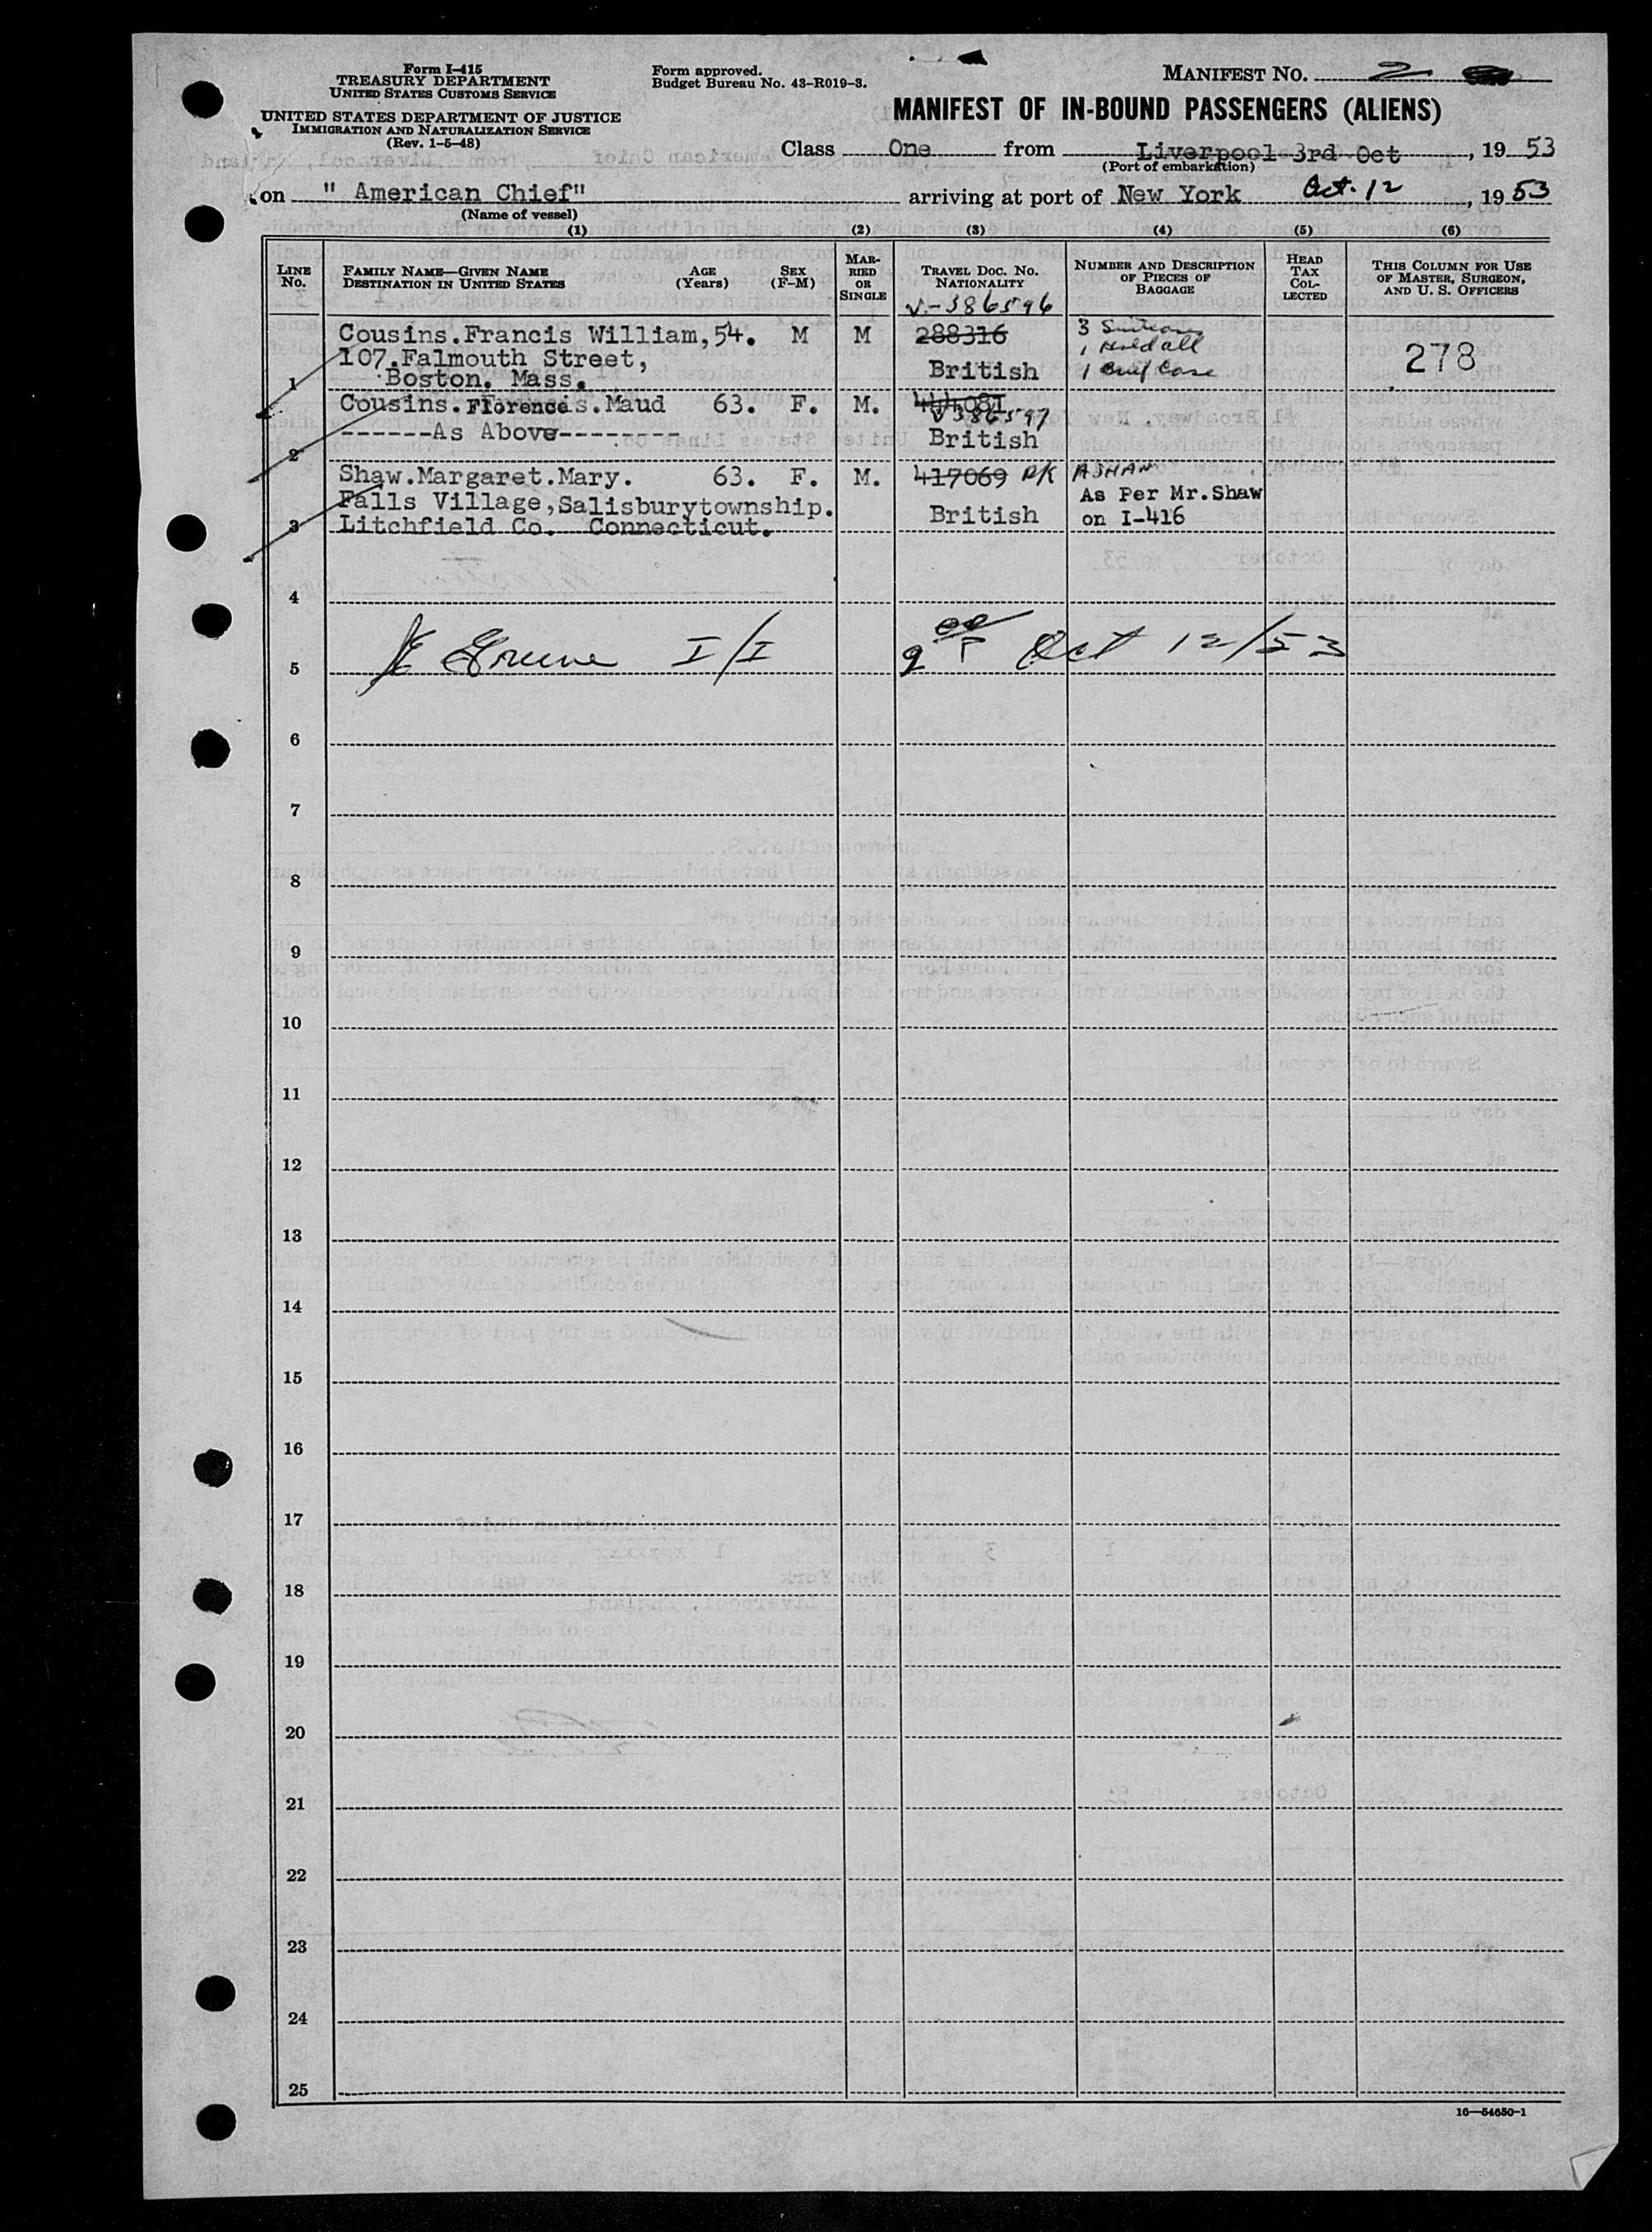 Form I-415
TREASURY DEPARTMENT
UNITED STATES CUSTOMS SERVICE
UNITED STATES DEPARTMENT OF JUSTICE
IMMIGRATION AND NATURALIZATION SERVICE
(Rev. 1-5-48)
Form approved.
Budget Bureau No. 43-R019-3.
MANIFEST NO. 2
MANIFEST OF IN-BOUND PASSENGERS (ALIENS)
Class One from Liverpool 3rd Oct, 19 53
(Port of embarkation)
on " American Chief" arriving at port of New York Oct. 12, 19 53
(Name of vessel)
(1) (2) (3) (4) (5) (6)
LINE NO.
FAMILY NAME—GIVEN NAME
DESTINATION IN UNITED STATES
AGE
(Years)
SEX
(F-M)
MAR-
RIED
OR
SINGLE
TRAVEL DOC. NO.
NATIONALITY
NUMBER AND DESCRIPTION
OF PIECES OF
BAGGAGE
HEAD
TAX
COL-
LECTED
THIS COLUMN FOR USE
OF MASTER, SURGEON,
AND U. S. OFFICERS
V-386596
Cousins.Francis William, 54. M M 288316 3
107.Falmouth Street, 1 Holdall
1 Boston. Mass. British 1 Brief Case 278
Cousins.Florence.Maud 63. F. M. 444081
V386597
2 ------As Above-------- British
Shaw.Margaret.Mary. 63. F. M. 417069
Falls Village,Salisburytownship. As Per Mr.Shaw
3 Litchfield Co. Connecticut. British on I-416
4
5 Greene I/I Oct 12/53
6
7
8
9
10
11
12
13
14
15
16
17
18
19
20
21
22
23
24
25
16—54650-1